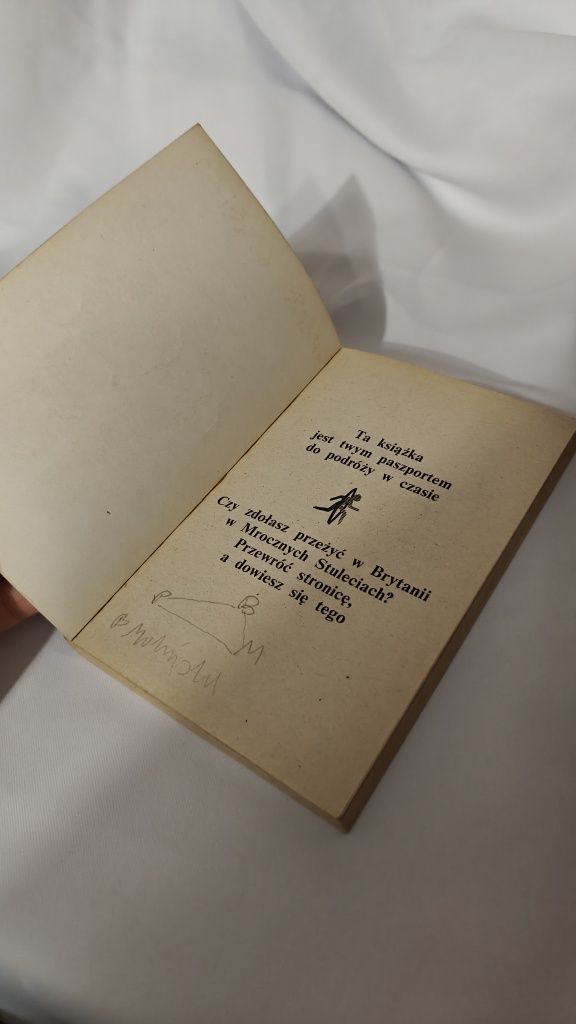 Ta książka
jest twym paszportem
do podróży w czasie
Czy zdołasz przeżyć w Brytanii
w Mrocznych Stuleciach?
Przewróć stronicę,
a dowiesz się tego
P B
M